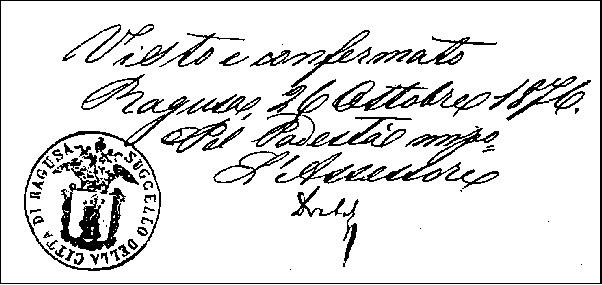 Visto e confermato
Ragusa, 26 Ottobre 1876.
Pel Podestà impo
L'Assessore
SUGGELLO DELLA CITTA DI RAGUSA